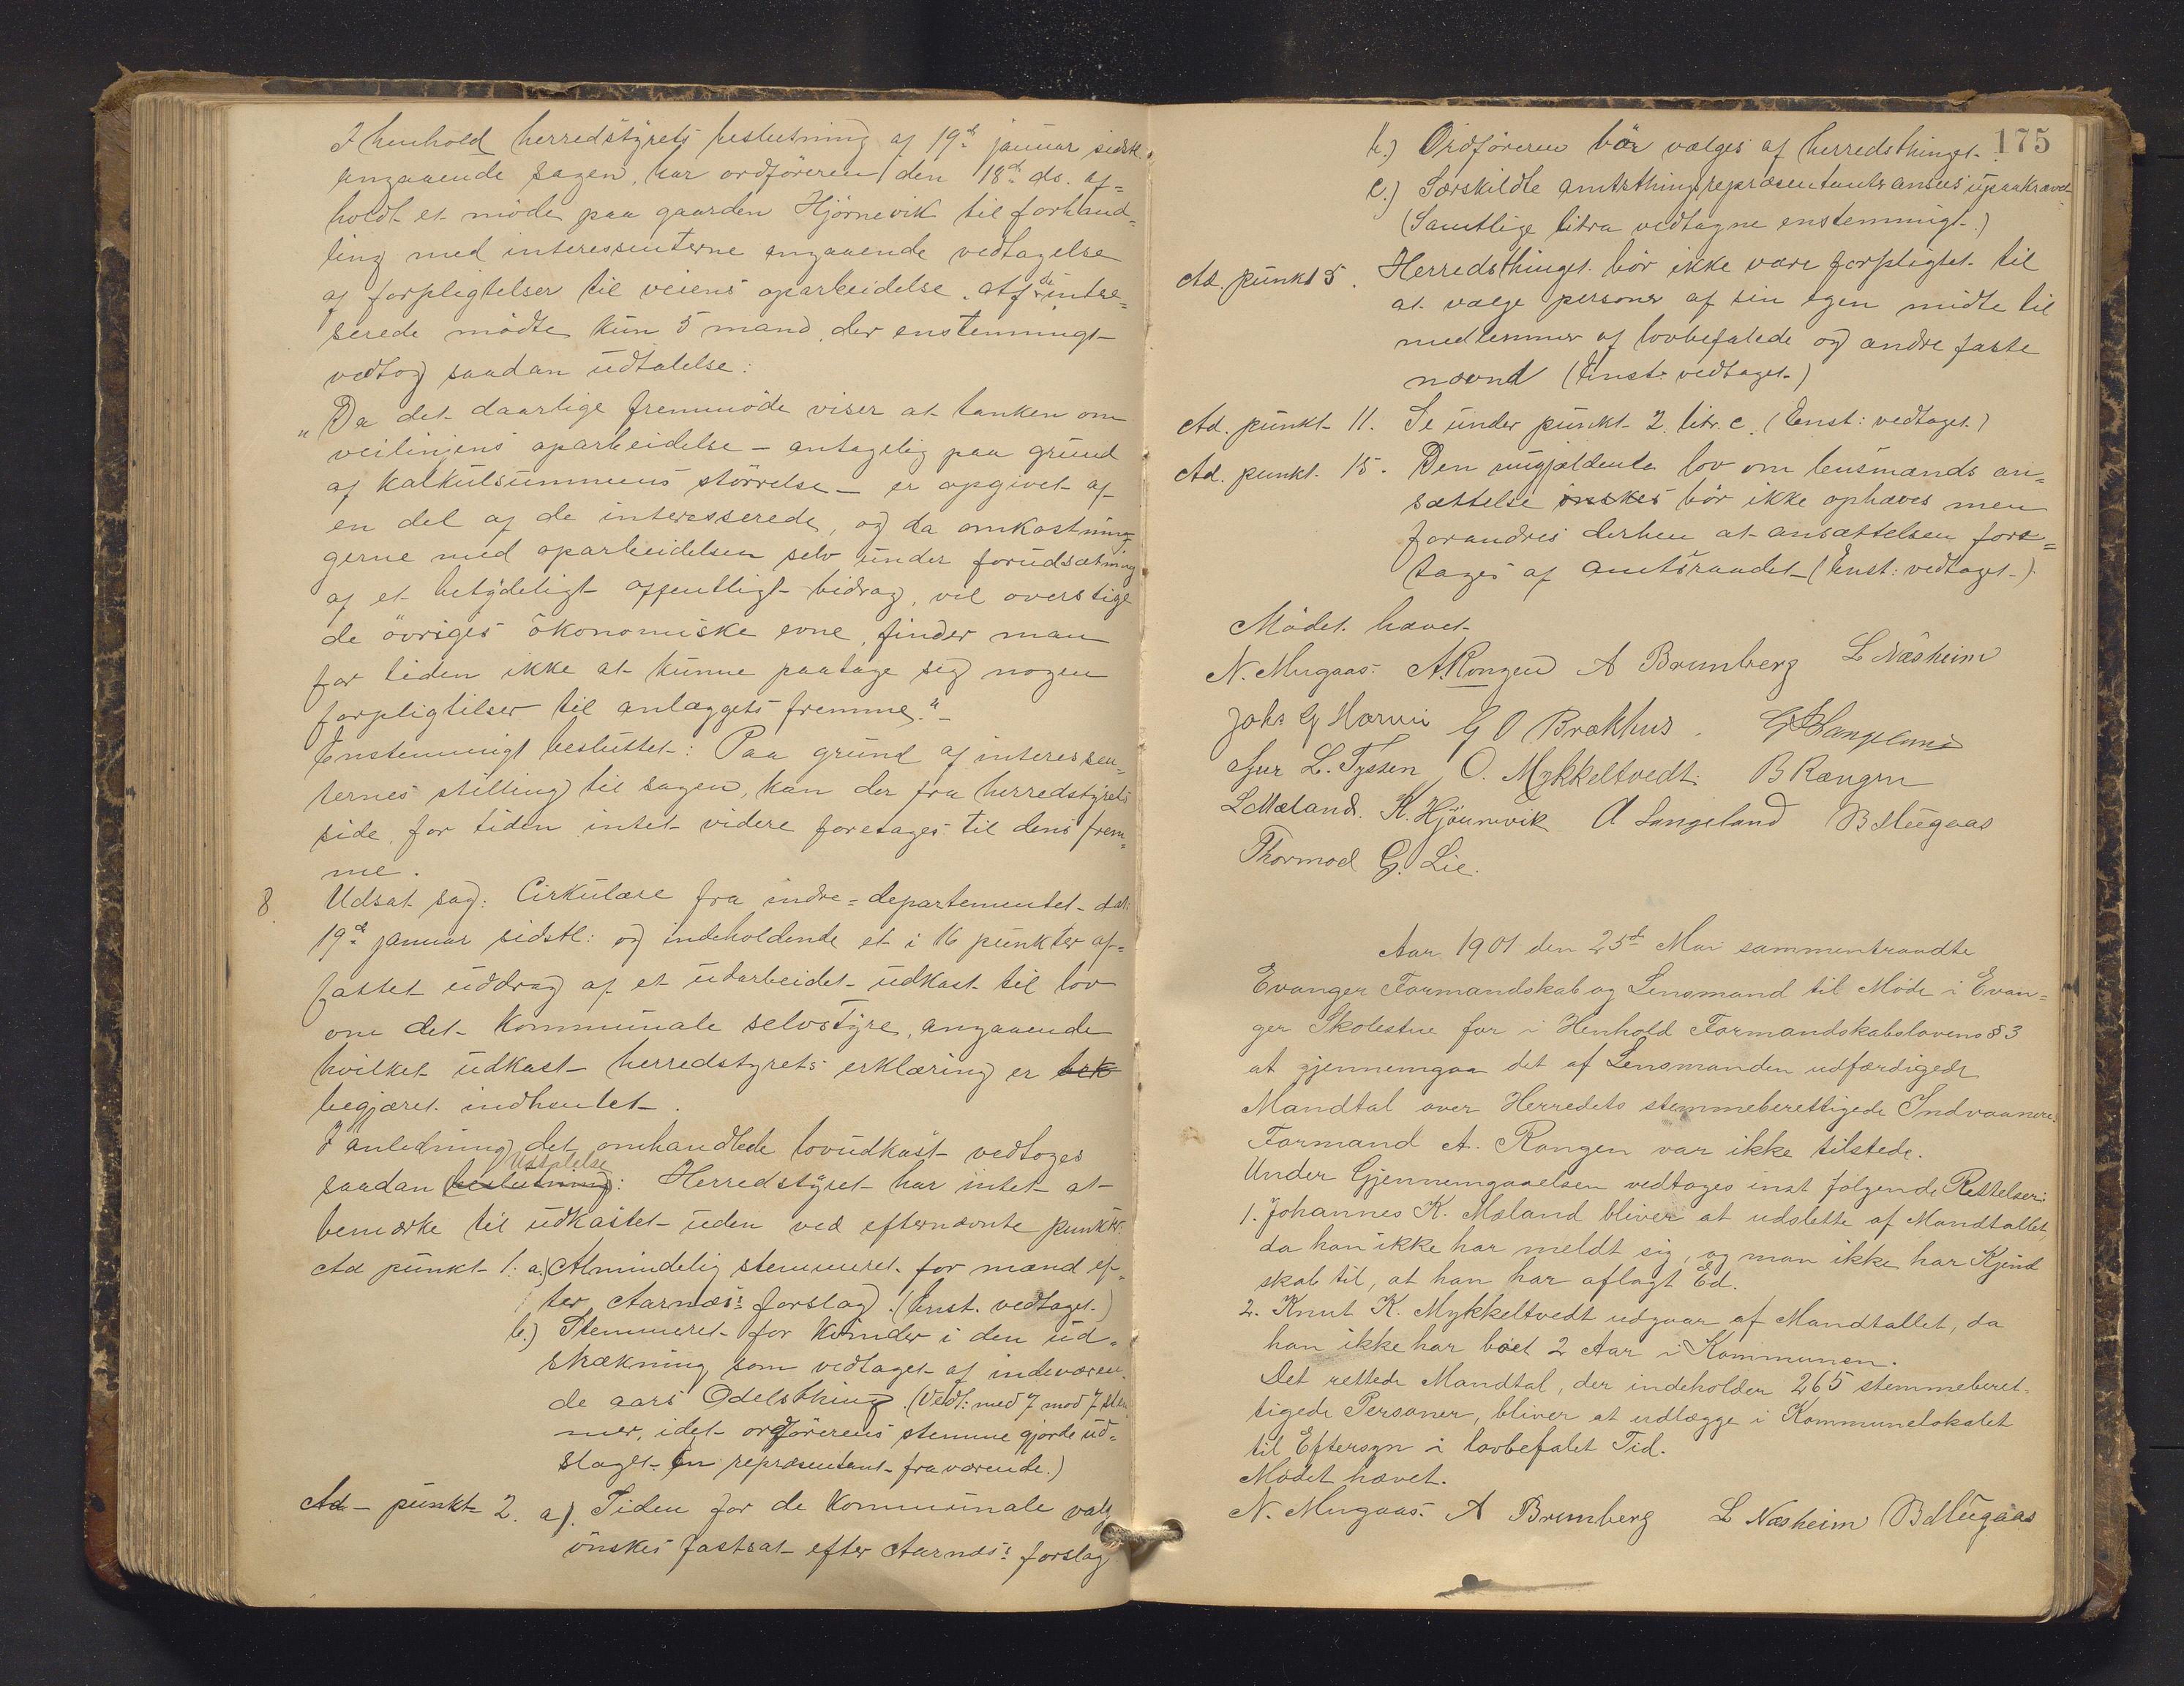 I henhold herredstyrets beslutning af 19de januar sidstl.
angaaende sagen, har ordføreren den 18de ds. af=
holdt et møde paa gaarden Hjørnevik til forhand=
ling med interessenterne angaaende vedtagelse
af forpligtelser til veiens oparbeidelse. Af de intre=
serede mødte kun 5 mand, der enstemmigt
vedtog saadan udtalelse:
"Da det daarlige fremmøde viser at tanken om
veilinjens oparbeidelse – antagelig paa grund
af kalkulsummens størrelse – er opgivet af
en del af de interesserede, og da omkostnin=
gerne med oparbeidelsen selv under forudsætning
af et betydeligt offentligt bidrag, vil overstige
de øvriges økonomiske evne, finder man
for tiden ikke at kunne paatage sig nogen
forpligtilser til anlæggets fremme."
Enstemmigt besluttet: Paa grund af interessen=
ternes stilling til sagen, kan der fra herredstyrets
side for tiden intet videre foretages til dens frem=
me.
8. Udsat sag: Cirkulære fra indre=departementet dat.
19de januar sidstl: og indeholdende et i 16 punkter af=
fattet uddrag af et udarbeidet udkast til lov
om det kommunale selvstyre, angaaende
hvilket udkast herredstyrets erklæring er bek
begjæret indhentet.
I anledning det omhandlede lovudkast vedtoges
Udtalelse
saadan beslutning: Herredstyret har intet at
bemærke til udkastet uden ved efternævnte punkter:
Ad punkt 1: a.) Almindelig stemmeret for mænd ef=
ter Aarnæs's forslag. (Enst. vedtaget.)
b.) Stemmeret for kvinder i den ud=
strækning som vedtaget af indeværen=
de aars Odelsthing. (Vedt: med 7 mod 7 stem
mer, idet ordførerens stemme gjorde ud=
slaget. En repræsentant fraværende.)
Ad – punkt 2. a). Tiden for de kommunale valg
ønskes fastsat efter Aarnæs's forslag
175
b.) Ordføreren bør vælges af herredsthinget.
c.) Særskildte amtsthingsrepræsentanter ansees upaakrævet
(Samtlige litra vedtagne enstemmigt.)
Ad. punkt 5. Herredsthinget bør ikke være forpligtet til
at vælge personer af sin egen midte til
medlemmer af lovbefalede og andre faste
nævnd (Enst. vedtaget.)
Ad. punkt 11. Se under punkt 2. litr. c. (Enst: vedtaget.)
Ad. punkt 15. Den nugjældende lov om lensmænds an=
sættelse ønskes bør ikke ophæves men
forandres derhen at ansættelsen fore=
tages af amtsraadet – (Enst: vedtaget.)
Mødet hævet.
N. Mugaas. A. Rongen A Brunberg L Næsheim
Johs G Horvei G O Brækhus.
Sjur L. Tyssen O. Mykkeltvedt. B Rængen
L Mæland. K. Hjørnevik A Langeland B Mugaas
Thormod G. Lie.
Aar 1901 den 25de Mai sammentraadte
Evanger Formandskab og Lensmand til Møde i Evan=
ger Skolestue for i Henhold Formandskabslovens § 3
at gjennemgaa det af Lensmanden udfærdigede
Mandtal over Herredets stemmeberettigede Indvaanere.
Formand A. Rongen var ikke tilstede.
Under Gjennemgaaelsen vedtoges inst følgende Rettelser:
1. Johannes K. Mæland bliver at udslette af Mandtallet,
da han ikke har meldt sig, og man ikke har Kjend
skab til, at han har aflagt Ed.
2. Knut K. Mykkeltvedt udgaar af Mandtallet, da
han ikke har boet 2 Aar i Kommunen.
Det rettede Mandtal, der indeholder 265 stemmeberet=
tigede Personer, bliver at udlægge i Kommunelokalet
til Eftersyn i lovbefalet Tid.
Mødet hævet.
N. Mugaas. A Brunberg L Næsheim B Mugaas